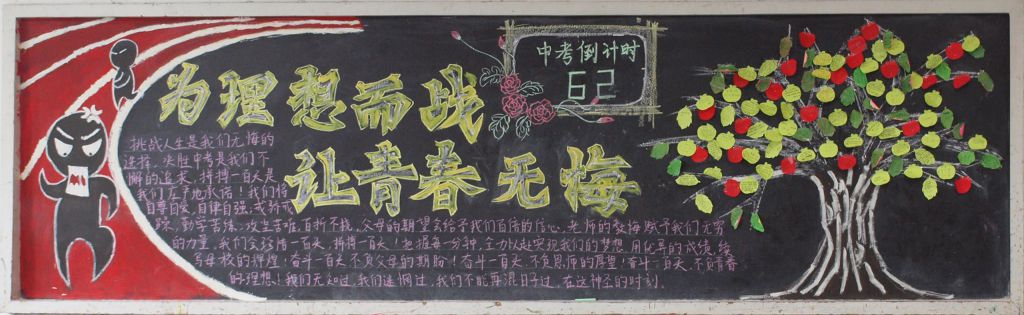 中考倒计时
62
为理想而战
让青春无悔
挑战人生是我们无悔的
选择，决胜中考是我们不
懈的追求，拼搏一百天是
我们庄严地承诺！我们将
自尊自爱，自律自强，戒骄戒
躁，勤学苦练，攻坚苦难，百折不挠，父母的期望会给予我们百倍的信心，老师的教诲赋予我们无穷
的力量，我们会珍惜一百天，拼搏一百天！把握每一分钟，全力以赴实现我们的梦想，用优异的成绩，续
写母校的辉煌！奋斗一百天，不负父母的期盼！奋斗一百天，不负恩师的厚望！奋斗一百天，不负青春
的理想！我们无知过，我们迷惘过，我们不能再混日子过，在这神圣的时刻．